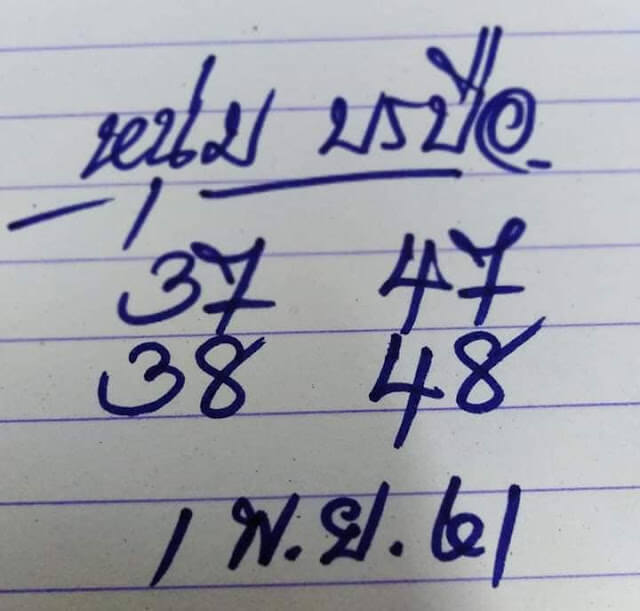 หนุ่ม บรบือ
37 47
38 48
1 พ.ย. 61